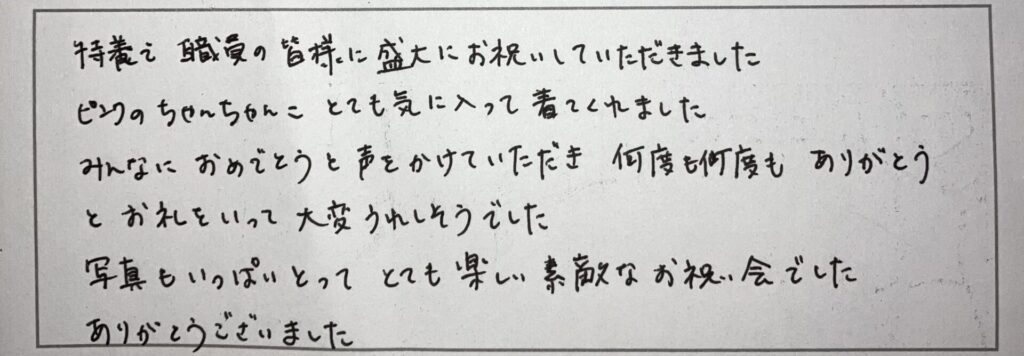 特養で 職員の皆様に盛大にお祝いしていただきました
ピンクのちゃんちゃんこ とても気に入って着てくれました
みんなに おめでとうと声をかけていただき 何度も何度も ありがとう
とお礼をいって 大変うれしそうでした
写真もいっぱいとって とても楽しい素敵なお祝い会でした
ありがとうございました